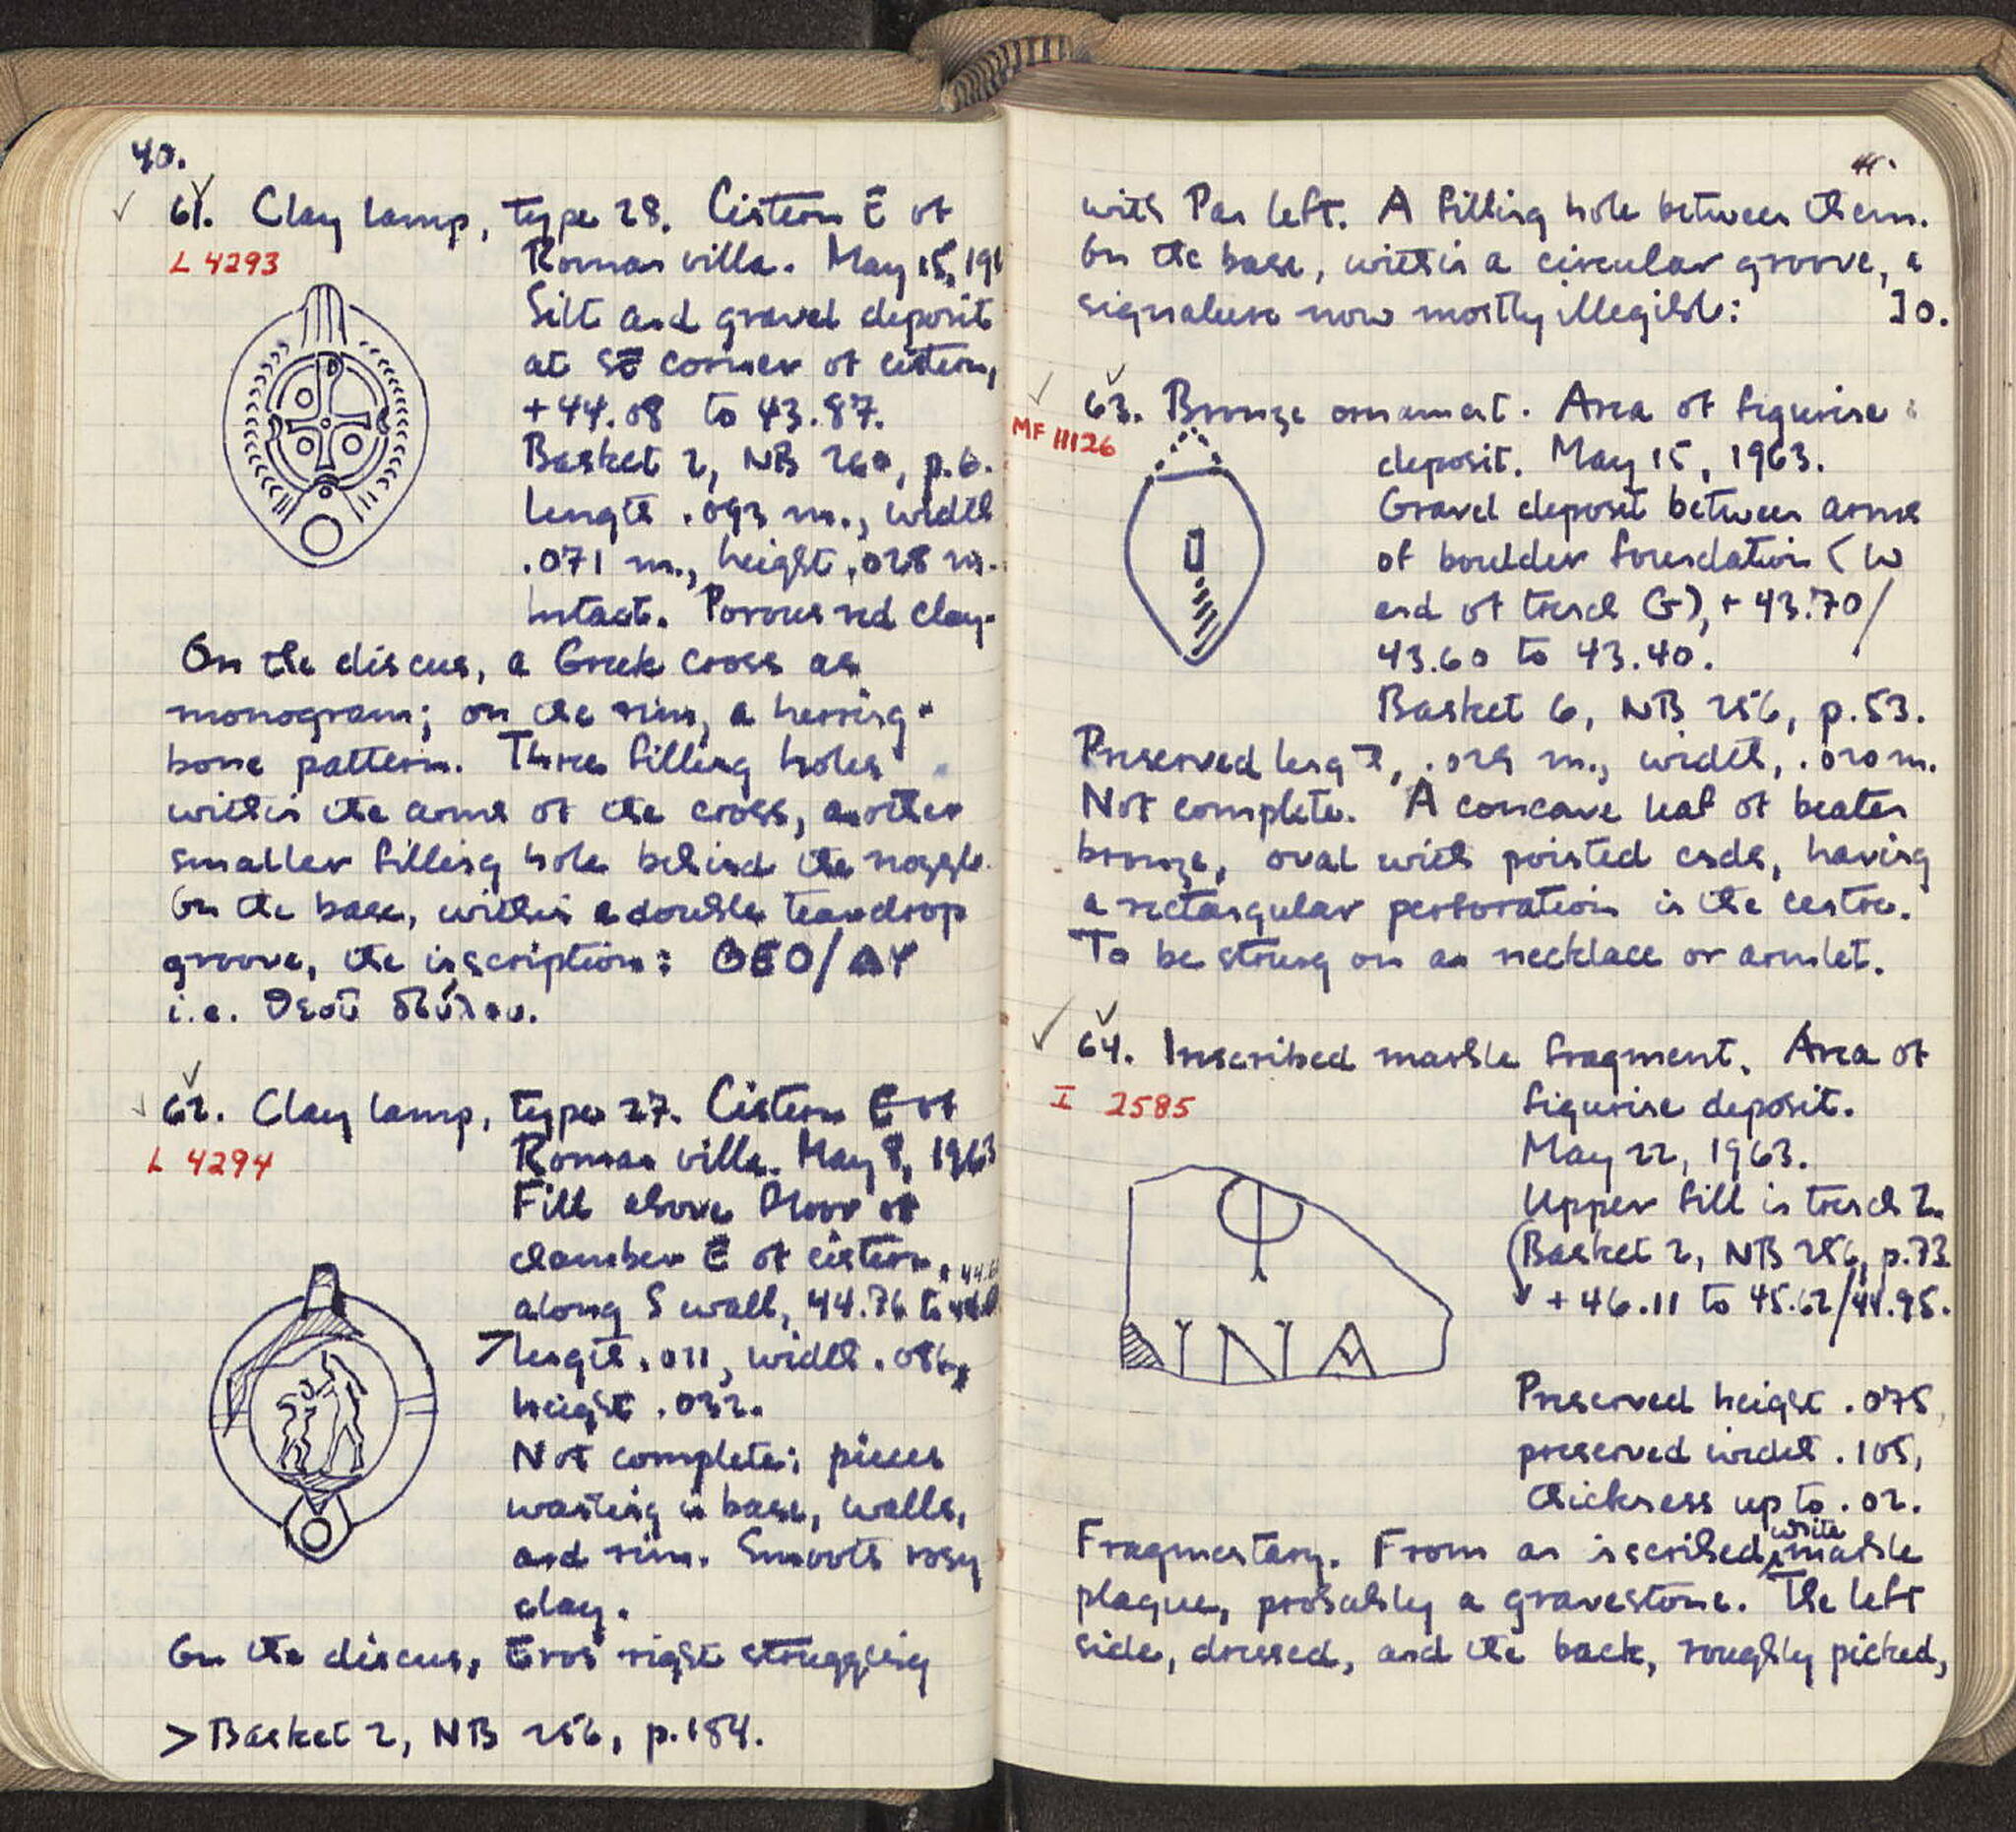 40.
61. Clay lamp, type 28. Cistern E of
L 4293
Roman villa. May 15, 19
Silt and gravel deposit
at SE corner of cistern,
+44.08 to 43.87.
Basket 2, NB 260, p.6.
Length .093 m., width
.071 m., height .028 m.
Intact. Porous red clay.
On the discus, a Greek cross as
monogram; on the rim, a herring-
bone pattern. Three filling holes
within the arms of the cross, another
smaller filling hole behind the nozzle.
On the base, within a double teardrop
groove, the inscription: ΘΕΟ/ΔΥ
i.e. Θεοῦ δούλου.
62. Clay lamp, type 27. Cistern E of
L 4294
Roman villa. May 8, 1963
Fill above floor of
chamber E of cistern,
along S wall, 44.76 to
> length .011, width .086,
height .032.
Not complete; pieces
wanting in base, walls,
and rim. Smooth rosy
clay.
On the discus, Eros right struggling
> Basket 2, NB 256, p.184.
41.
with Pan left. A filling hole between them.
On the base, within a circular groove, a
signature now mostly illegible: ]o.
63. Bronze ornament. Area of figurine
MF 11126
deposit. May 15, 1963.
Gravel deposit between arms
of boulder foundation (W
end of trench G), +43.70/
43.60 to 43.40.
Basket 6, NB 256, p.53.
Preserved length, .029 m., width, .020 m.
Not complete. A concave leaf of beaten
bronze, oval with pointed ends, having
a rectangular perforation in the centre.
To be strung on a necklace or armlet.
64. Inscribed marble fragment. Area of
I 2585
figurine deposit.
May 22, 1963.
Upper fill in trench
(Basket 2, NB 256, p.73
+46.11 to 45.62/44.95.
ΙΝΑ
Preserved height .075,
preserved width .105,
thickness up to .02.
Fragmentary. From an inscribed white marble
plaque, probably a gravestone. The left
side, dressed, and the back, roughly picked,